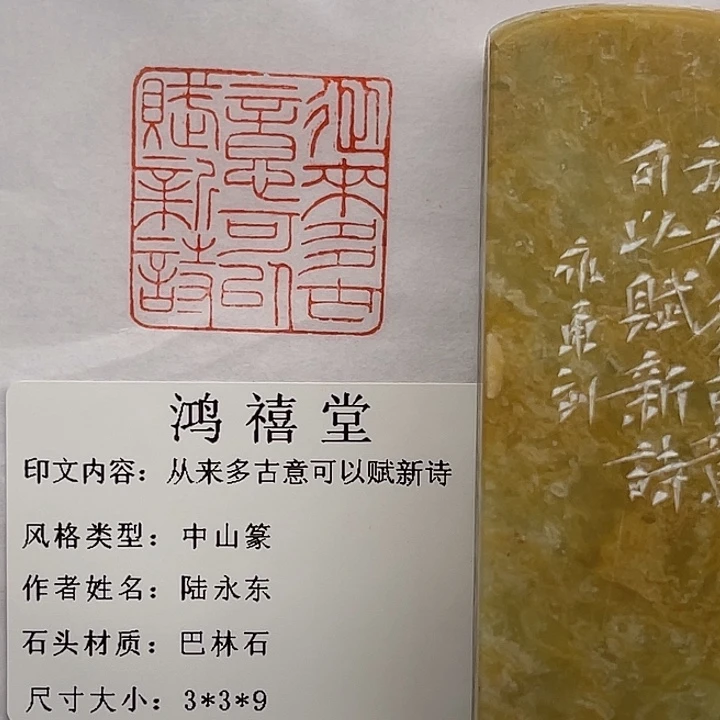 从来多古
意可以
赋新诗
鸿禧堂
印文内容：从来多古意可以赋新诗
风格类型：中山篆
作者姓名：陆永东
石头材质：巴林石
尺寸大小：3*3*9
可以賦新詩
永東刻